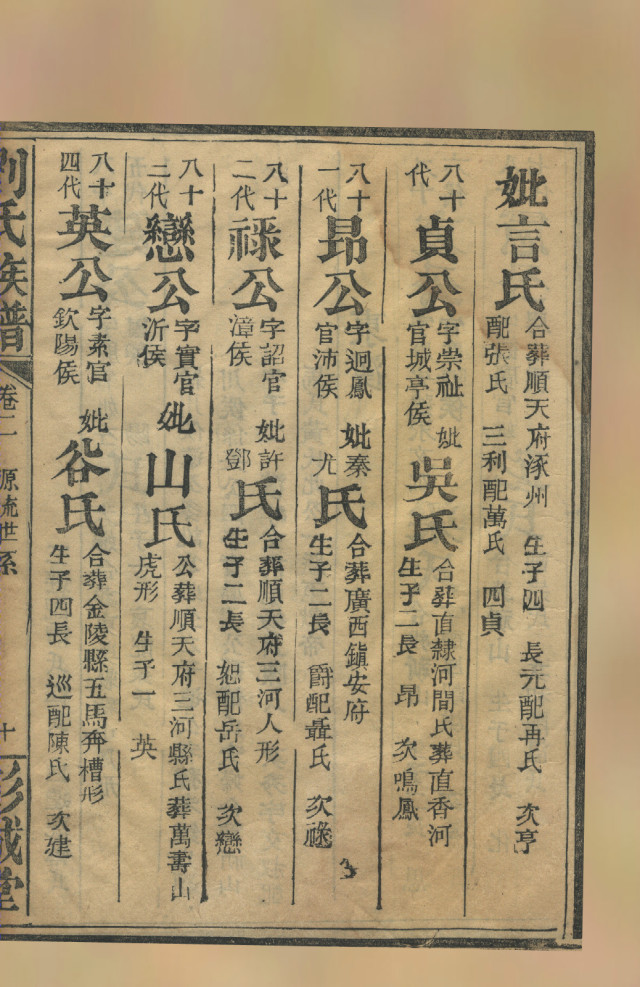 妣言氏
合葬順天府涿州 生子四 長元配再氏 次亨
配張氏 三利配萬氏 四貞
八十
代
貞公
字崇祉
官城亭侯
妣吳氏
合葬直隸河間氏葬直香河
生子二長 昂 次鳴鳳
八十
一代
昂公
字迥鳳
官沛侯
妣秦
尤
氏
合葬廣西鎮安府
生子二長 爵配聶氏 次祿
八十
二代
祿公
字詔官
漳侯
妣許
鄧
氏
合葬順天府三河人形
生子二長 恕配岳氏 次戀
八十
三代
戀公
字實官
沂侯
妣山氏
公葬順天府三河縣氏葬萬壽山
虎形 生子一 英
八十
四代
英公
字素官
欽陽侯
妣谷氏
合葬金陵縣五馬奔槽形
生子四長 巡配陳氏 次建
劉氏族譜
卷二 源流世系
十
彭城堂